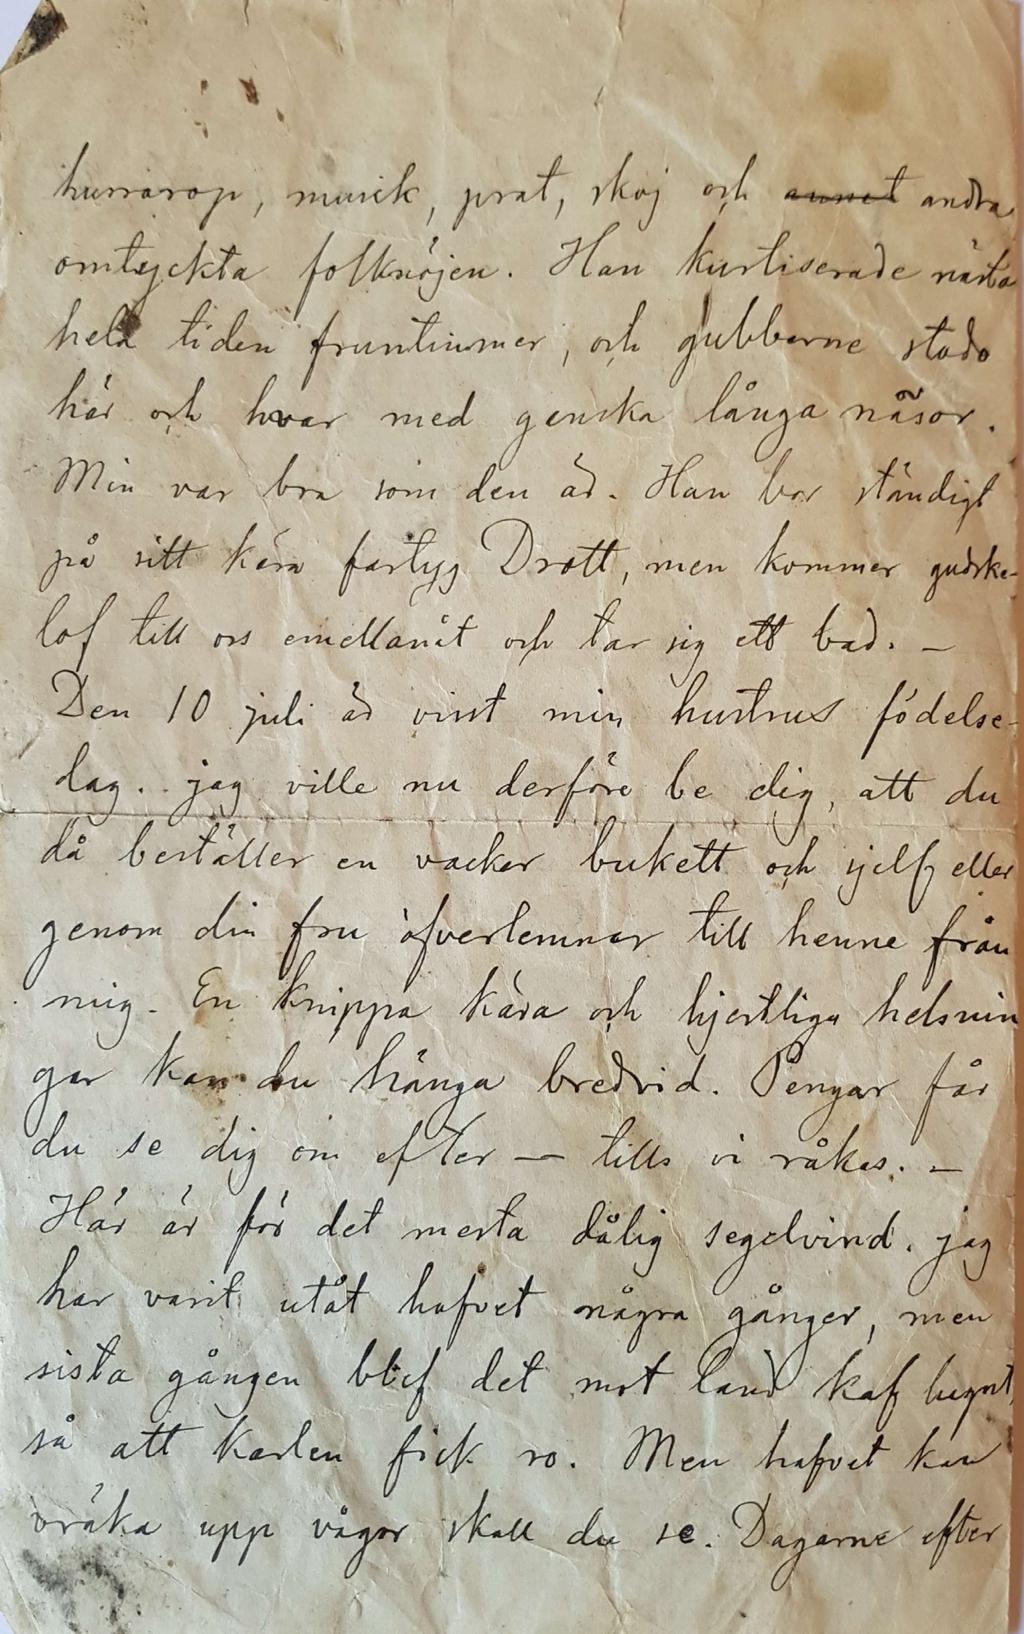 hurrarop, musik, prat, skoj och annat andra
omtyckta folknöjen. Han kurtiserade nästa
hela tiden fruntimmer, och gubbarne stodo
här och hvar med ganska långa näsor.
Min var bra som den är. Han bor ständigt
på sitt kära fartyg Drott, men kommer gudske-
lof till oss emellanåt och tar sig ett bad. —
Den 10 juli är visst min hustrus födelse-
dag. jag ville nu derföre be dig, att du
då beställer en vacker bukett och sjelf eller
genom din fru öfverlemnar till henne från
mig. En knippa kära och hjertliga helsnin
gar kan du hänga bredvid. Pengar får
du se dig om efter — tills vi råkas. —
Här är för det mesta dålig segelvind. jag
har varit utåt hafvet några gånger, men
sista gången blef det mot land kaf lugnt,
så att karlen fick ro. Men hafvet kan
vräka upp vågor skall du se. Dagarne efter